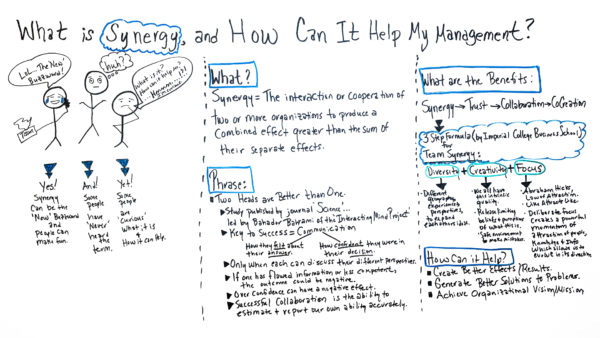 What is Synergy, and How Can It Help My Management?
LoL.. The New
Buzzword!
huh?
What is it?
How can it help?
Yes!
Synergy
Can be the
'New' Buzzword and
people can
make fun.
And!
Some
people
have
'Never'
heard
the
term.
Yet!
Some
people
are
'Curious'
What it
is
+
How it can help.
What?
Synergy = The interaction or cooperation of
two or more organizations to produce a
Combined effect greater than the sum of
their separate effects.
Phrase:
Two Heads are Better than One.
Study published by journal 'Science'...
led by Bahador Bahrami of the Interacting Mind Project
Key to Success = Communication
How they felt about
their answer.
How confident they were in
their decision.
Only when each can discuss their different perspectives.
If one has flawed information or less competent,
the outcome could be negative.
Over confidence can have a negative effect.
Successful Collaboration is the ability to
estimate + report our own ability accurately.
What are the Benefits:
Synergy → Trust → Collaboration → CoCreation
3 Step Formula (by Imperial College Business School)
for
Team Synergy:
Diversity + Creativity + Focus
Different
geography,
experiences +
perspectives, to
each others ideas.
We all have
this intrinsic
quality.
Release limiting
beliefs + perceptions
of what this is.
Safe environment
to make mistakes.
Abraham Hicks,
Law of Attraction.
Like Attracts Like.
Deliberate focus
Creates a powerful
momentum of
attraction of people,
Knowledge + Info
Which allows us to
evolve in its direction.
How Can it Help?
Create Better Effects/Results.
Generate Better Solutions to Problems.
Achieve Organizational Vision/Mission